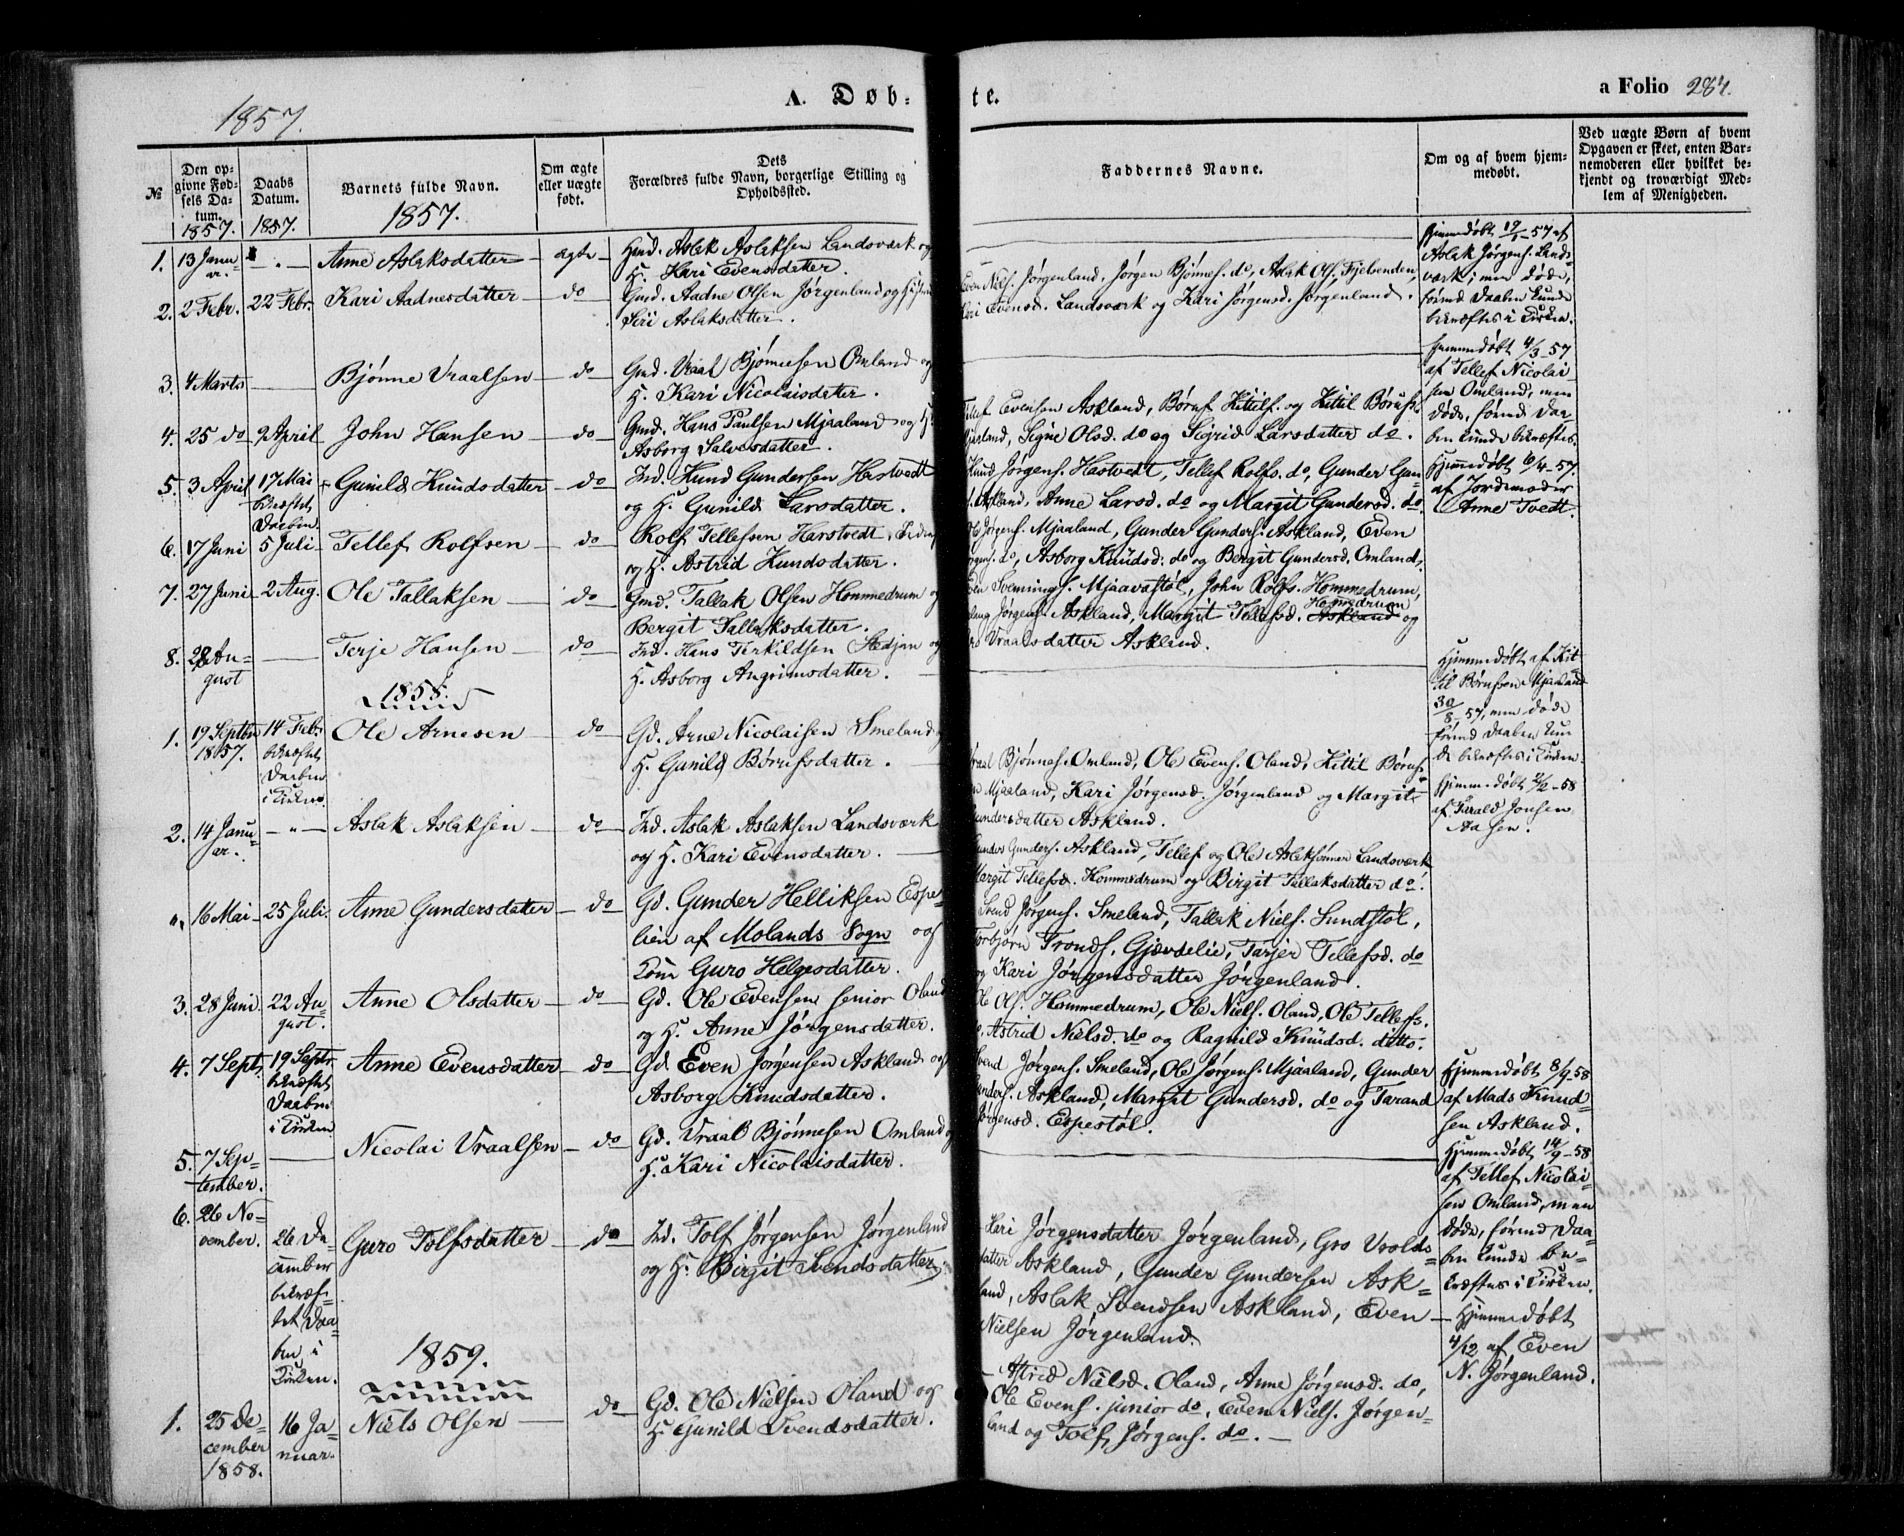 1857.
A. Døb-
te.
a Folio 284.
№
Den op-
givne Fød-
sels Da-
tum.
1857.
Daabs
Datum.
1857.
Barnets fulde Navn.
1857.
Om ægte
eller uægte
født.
Dets
Forældres fulde Navn, borgerlige Stilling og
Opholdssted.
Faddernes Navne.
Om og af hvem hjem-
medøbt.
Ved uægte Børn af hvem
Opgaven er skeet, enten Bar-
nemoderen eller hvilket be-
kjendt og troværdigt Med-
lem af Menigheden.
1. 13 Janu- Anne Aslaksdatter ægte Gmd. Aslak Aslaksen Landsværk og
ar. H. Kari Evensdatter.
Hjemmedøbt 19/1-57 af
Aslak Jørgens. Lands-
værk; men døde,
førend Daaben kunde
bekræftes i Kirken.
2. 2 Febr. 22 Febr. Kari Aadnesdatter do Gmd. Aadne Olsen Jørgenland og Hustru
Siri Aslaksdatter.
Even Niels. Jørgenland, Jørgen Bjønnes. do, Aslak Ols. Fjelbenden,
Kari Evensd. Landsværk og Kari Jørgensd. Jørgenland.
3. 4 Marts Bjønne Vraalsen do Gmd. Vraal Bjønnesen Omland og
H. Kari Nicolaisdatter.
Hjemmedøbt 4/3-57
af Tellef Nicolai-
sen Omland, men
døde, førend Daa-
ben kunde bekræftes.
4. 25 do 9 April John Hansen do Gmd. Hans Paulsen Mjaaland og H.
Asborg Salvesdatter.
Tellef Evensen Askland, Børuf Kittils. og Kittil Børufs.
Mjaaland, Signe Olsd. do og Sigrid Larsdatter do.
5. 3 April 17 Mai Gunild Knudsdatter do Ind. Knud Gundersen Hastvedt
bekræftet og H. Gunild Larsdatter.
Daaben
Knud Jørgens. Hastvedt, Tellef Rolfs. do, Gunder Gun-
Askland, Anne Larsd. do og Margit Gundersd. do
Hjemmedøbt 6/4-57
af Jordemoder
Anne Tvedt.
6. 17 Juni 5 Juli Tellef Rolfsen do Rolf Tellefsen Harstvedt, Inder
og H. Astrid Knudsdatter.
Ole Jørgens. Mjaaland, Gunder Gunders. Askland, Even
Jørgens. do, Asborg Knudsd. do og Bergit Gundersd. Omland,
7. 27 Juni 2 Aug. Ole Tallaksen do Gmd. Tallak Olsen Hommedrum og
Bergit Tallaksdatter.
Svennings. Mjaavstøl, John Rolfs. Hommedrum,
Jørgens. Askland, Margit Tellefsd. Askland Hommedrum og
Vraalsdatter Askland.
8. 28 Au- Terje Hansen do Ind. Hans Terkildsen Stedjan og
gust H. Asborg Angrimsdatter.
Hjemmedøbt af Kit-
til Børufsen Mjaaland
30/8-57, men døde
førend Daaben kun-
de bekræftes i Kirken.
1858.
1. 19 Septbr 14 Febr. Ole Arnesen do Gd. Arne Nicolaisen Smeland
1857. bekræftet H. Gunild Børufsdatter.
Daaben
i Kirken.
Vraal Bjønnes. Omland, Ole Evens. Oland, Kittil Børuf-
Mjaaland, Kari Jørgensd. Jørgenland og Margit
Gundersdatter Askland.
Hjemmedøbt 2/2-58
af Harald Jonsen
Aasen.
2. 14 Janu- Aslak Aslaksen do Ind. Aslak Aslaksen Landsværk
ar. og H. Kari Evensdatter.
Gunder Gunders. Askland, Tellef og Ole Aslaksønner Landsværk
Margit Tellefsd. Hommedrum og Birgit Tallaksdatter do.
16 Mai 25 Juli. Anne Gundersdatter do Gd. Gunder Helliksen Espe-
lien af Molands Sogn og
Kone Guro Helgesdatter.
Svend Jørgens. Smeland, Tallak Niels. Sundstøl,
Torbjørn Tronds. Gjøvdelie, Tarjer Tellefsd. do
og Kari Jørgensdatter Jørgenland.
3. 28 Juni. 22 Au- Anne Olsdatter do Gd. Ole Evensen senior Oland
gust. og H. Anne Jørgensdatter.
Ole Ols. Hommedrum, Ole Niels. Oland, Ole Tellefs.
Astrid Nielsd. do og Ragnild Knudsd. ditto.
4. 7 Sept. 19 Septr. Anne Evensdatter do Gd. Even Jørgensen Askland og
bekræftet Asborg Knudsdatter.
Daaben
i Kirken
Svend Jørgens. Smeland, Ole Jørgens. Mjaaland, Gunder
Gunders. Askland, Margit Gundersd. do og Tarand
Jørgensd. Espestøl.
Hjemmedøbt 8/9-58
af Mads Knud-
sen Askland.
5. 7 Sep- Nicolai Vraalsen do Gd. Vraal Bjønnesen Omland og
tember. H. Kari Nicolaisdatter.
Hjemmedøbt 14/9-58
af Tellef Nicolai-
sen Omland, men
døde, førend Daa-
ben kunde be-
kræftes i Kirken.
6. 26 No- 26 De- Guro Tolfsdatter do Ind. Tolf Jørgensen Jørgenland
vember. cember og H. Birgit Svendsdatter
bekræf-
tet Daa-
ben i
Kirken.
Kari Jørgensdatter Jørgenland, Gro Vrolds-
datter Askland, Gunder Gundersen Ask-
land, Aslak Svendsen Askland, Even
Nielsen Jørgenland.
Hjemmedøbt
4/12 af Even
N. Jørgenland.
1859.
1. 25 De- 16 Ja- Niels Olsen do Gd. Ole Nielsen Oland og
cember nuar. H. Gunild Svendsdatter.
1858.
Astrid Nielsd. Oland, Anne Jørgensd. do,
Ole Evens. junior do, Even Niels. Jørgen-
land og Tolf Jørgens. do.